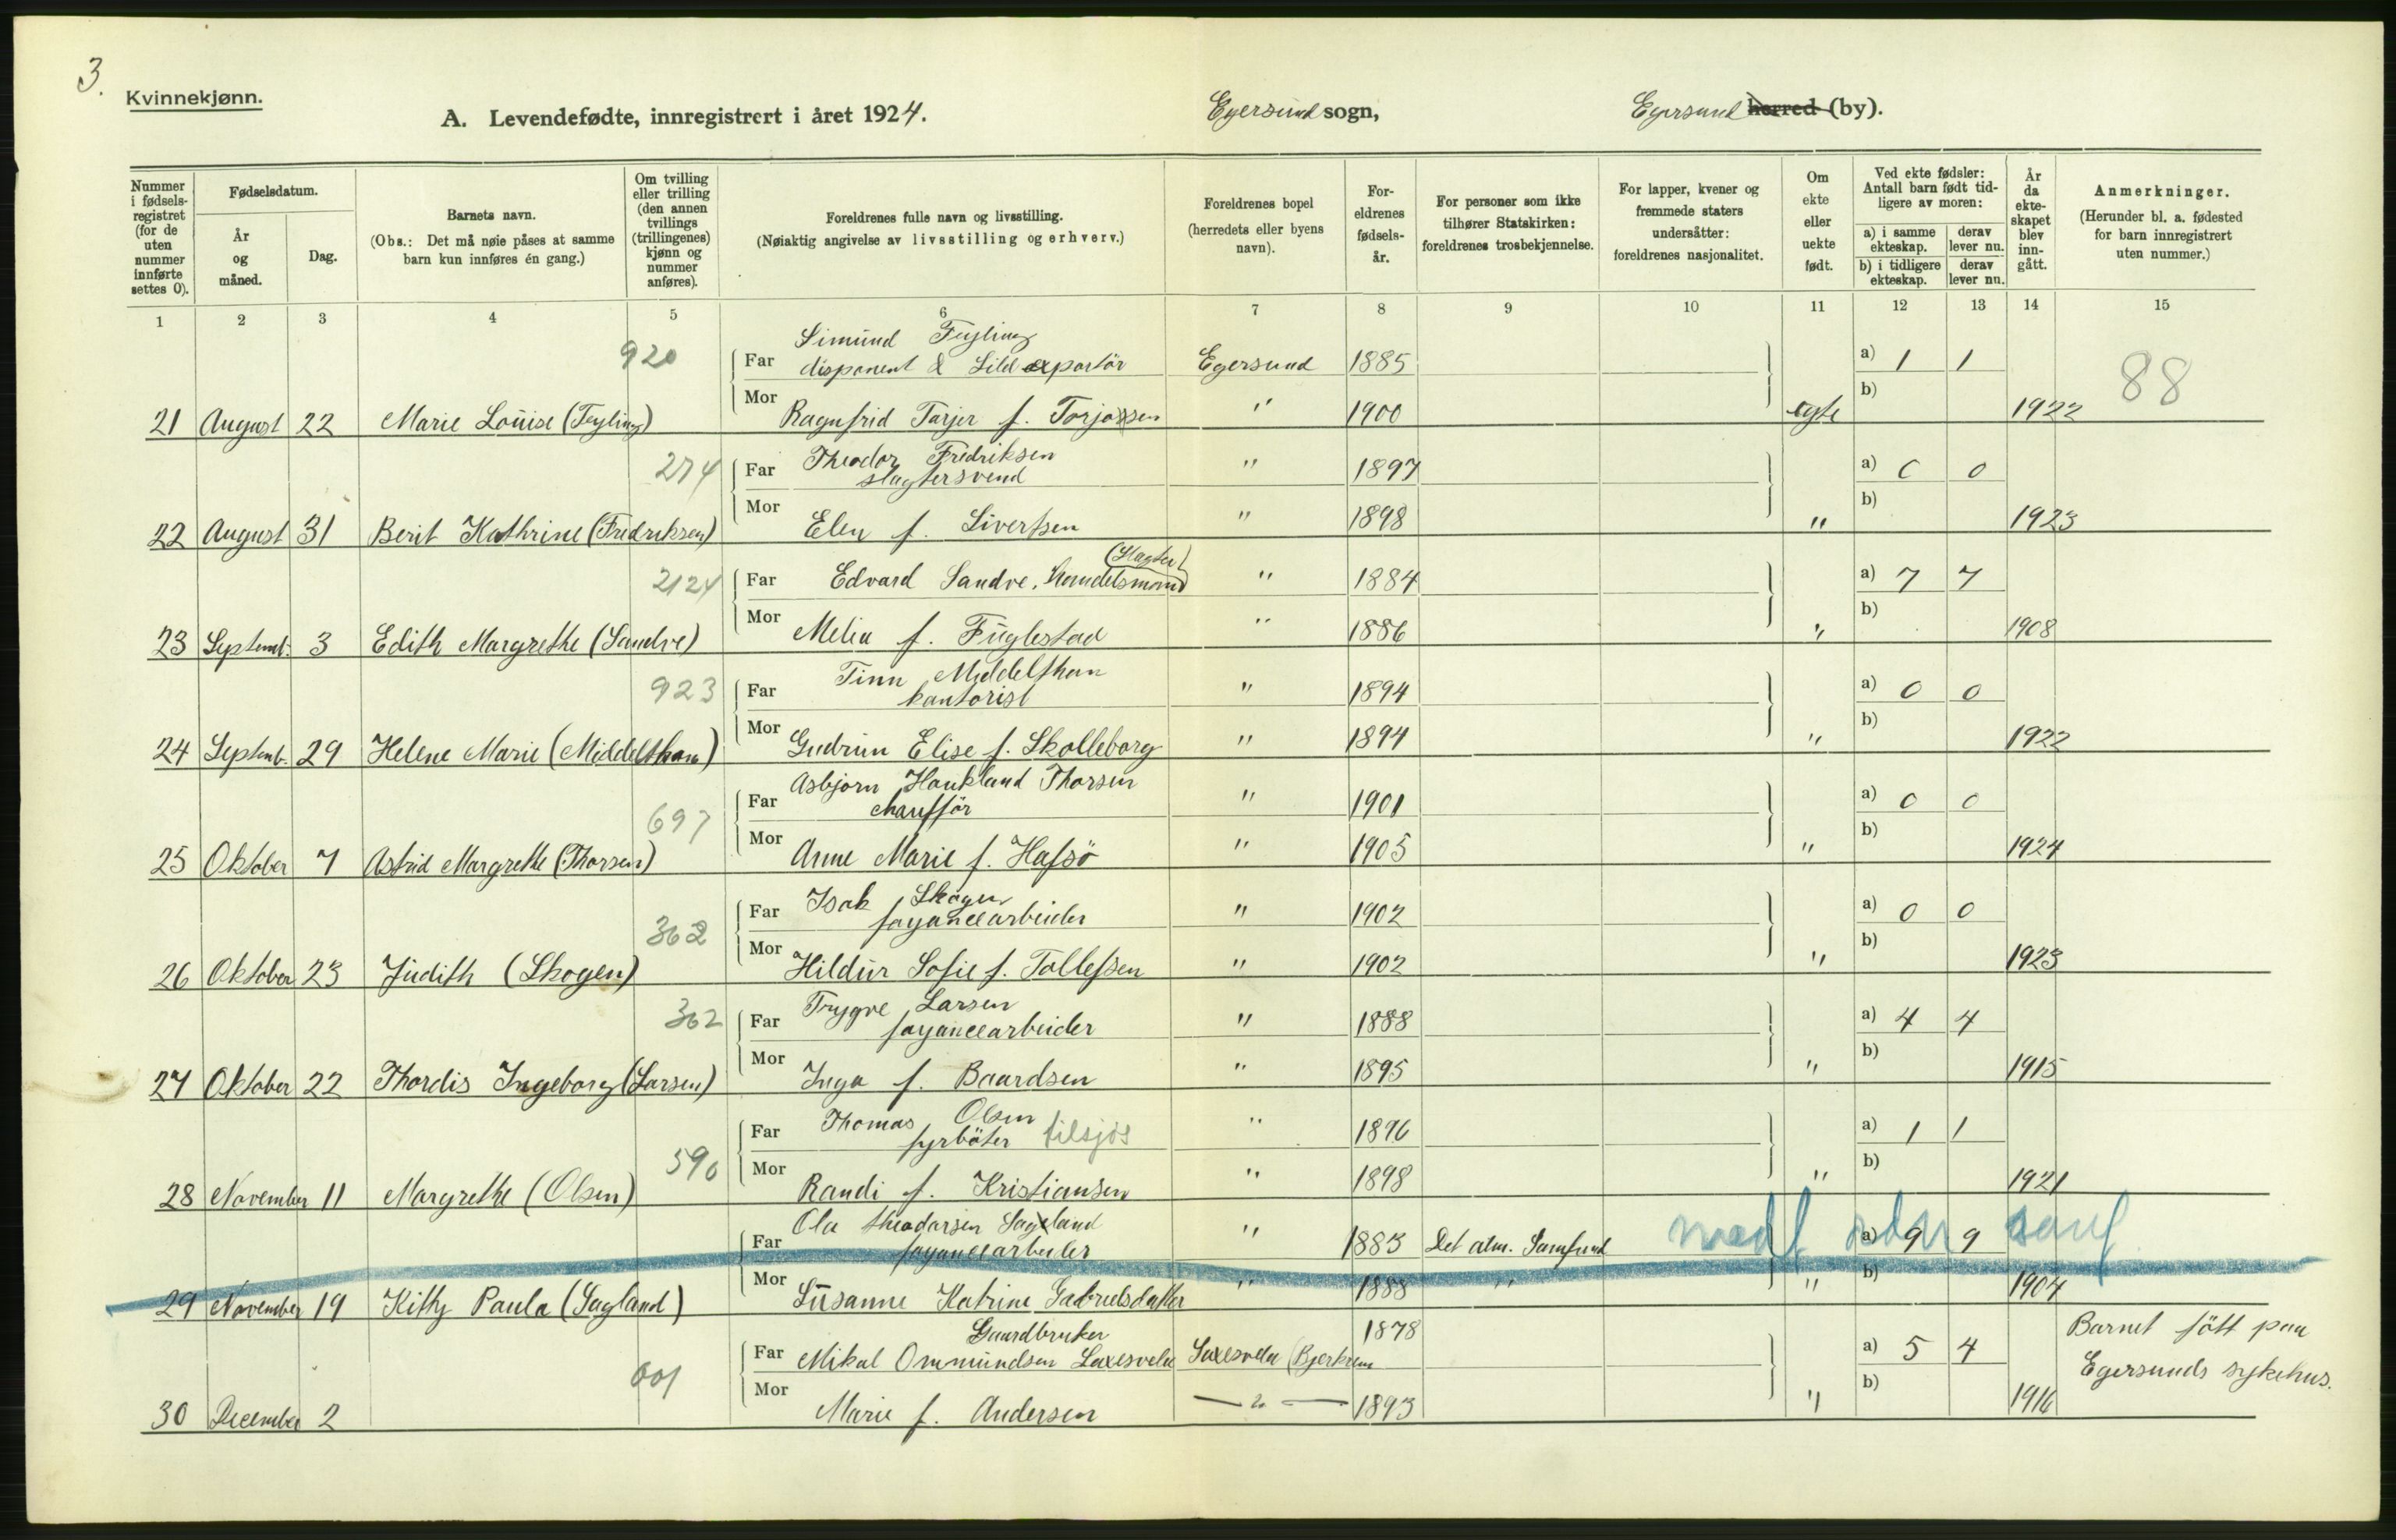 3.
Kvinnekjønn.
A. Levendefødte, innregistrert i året 1924. Egersund sogn, Egersund herred (by).
Nummer i fødsels-registret (for de uten nummer innførte settes 0).
Fødselsdatum.
År og måned.
Dag.
Barnets navn.
(Obs.: Det må nøie påses at samme barn kun innføres én gang.)
Om tvilling eller trilling (den annen tvillings (trillingenes) kjønn og nummer anføres).
Foreldrenes fulle navn og livsstilling.
(Nøiaktig angivelse av livsstilling og erhverv.)
Foreldrenes bopel (herredets eller byens navn).
For-eldrenes fødsels-år.
For personer som ikke tilhører Statskirken: foreldrenes trosbekjennelse.
For lapper, kvener og fremmede staters undersåtter: foreldrenes nasjonalitet.
Om ekte eller uekte født.
Ved ekte fødsler: Antall barn født tid-ligere av moren:
a) i samme ekteskap. derav lever nu.
b) i tidligere ekteskap. derav lever nu.
År da ekte-skapet blev inn-gått.
Anmerkninger.
(Herunder bl. a. fødested for barn innregistrert uten nummer.)
1 2 3 4 5 6 7 8 9 10 11 12 13 14 15
920 Simund Fuglins
Far disponent & Sildexportör Egersund 1885 a) 1 1 88
Mor b)
21 August 22 Marie Louise Ragnfrid Tarjer f. Torjassen " 1900 egte 1922
274 Far Theodor Fredriksen " 1897 a) 0 0
slagtersvend
Mor b)
22 August 31 Berit Kathrine (Fredriksen) Elen f. Sivertsen " 1898 " 1923
(Slagter)
2124 Far Edvard Sandve, handelsmand " 1884 a) 7 7
Mor b)
23 Septemb. 3 Edith Margrethe (Sandve) Melia f. Fuglestad " 1886 " 1908
Finn Middelthon
923 Far kontorist " 1894 a) 0 0
Mor b)
24 Septemb. 29 Helene Marie (Middelthon) Gudrun Elise f. Skolleborg " 1894 " 1922
Asbjørn Haukland Thorsen
697 Far chaufför " 1901 a) 0 0
Mor b)
25 Oktober 7 Astrid Margrethe (Thorsen) Anne Marie f. Hafsö " 1905 " 1924
Isak Skogen
362 Far fayancearbeider " 1902 a) 0 0
Mor b)
26 Oktober 23 Judith (Skogen) Hildur Sofie f. Tollefsen " 1902 " 1923
Trygve Larsen
362 Far fayancearbeider " 1888 a) 4 4
Mor b)
27 Oktober 22 Thordis Ingeborg (Larsen) Inga f. Baardsen " 1895 " 1915
Thomas Olsen
Far fyrböter tilsjös " 1896 a) 1 1
590 Mor b)
28 November 11 Margrethe (Olsen) Randi f. Kristiansen " 1898 " 1921
Ola Theodorsen Sageland
Far fayancearbeider " 1883 Det alm. Samfund a) 9 9
Mor b)
29 November 19 Kitty Paula (Sagland) Susanne Katrine Gabrielsdatter " 1888 " " 1904
Gaardbruker 1878 Barnet fött paa
Far Mikal Ommundsen Laxesvela Laxesvela (Bjerkrem a) 5 4 Egersunds sykehus.
601 Mor b)
30 December 2 Marie f. Andersen — " — 1893 " 1916